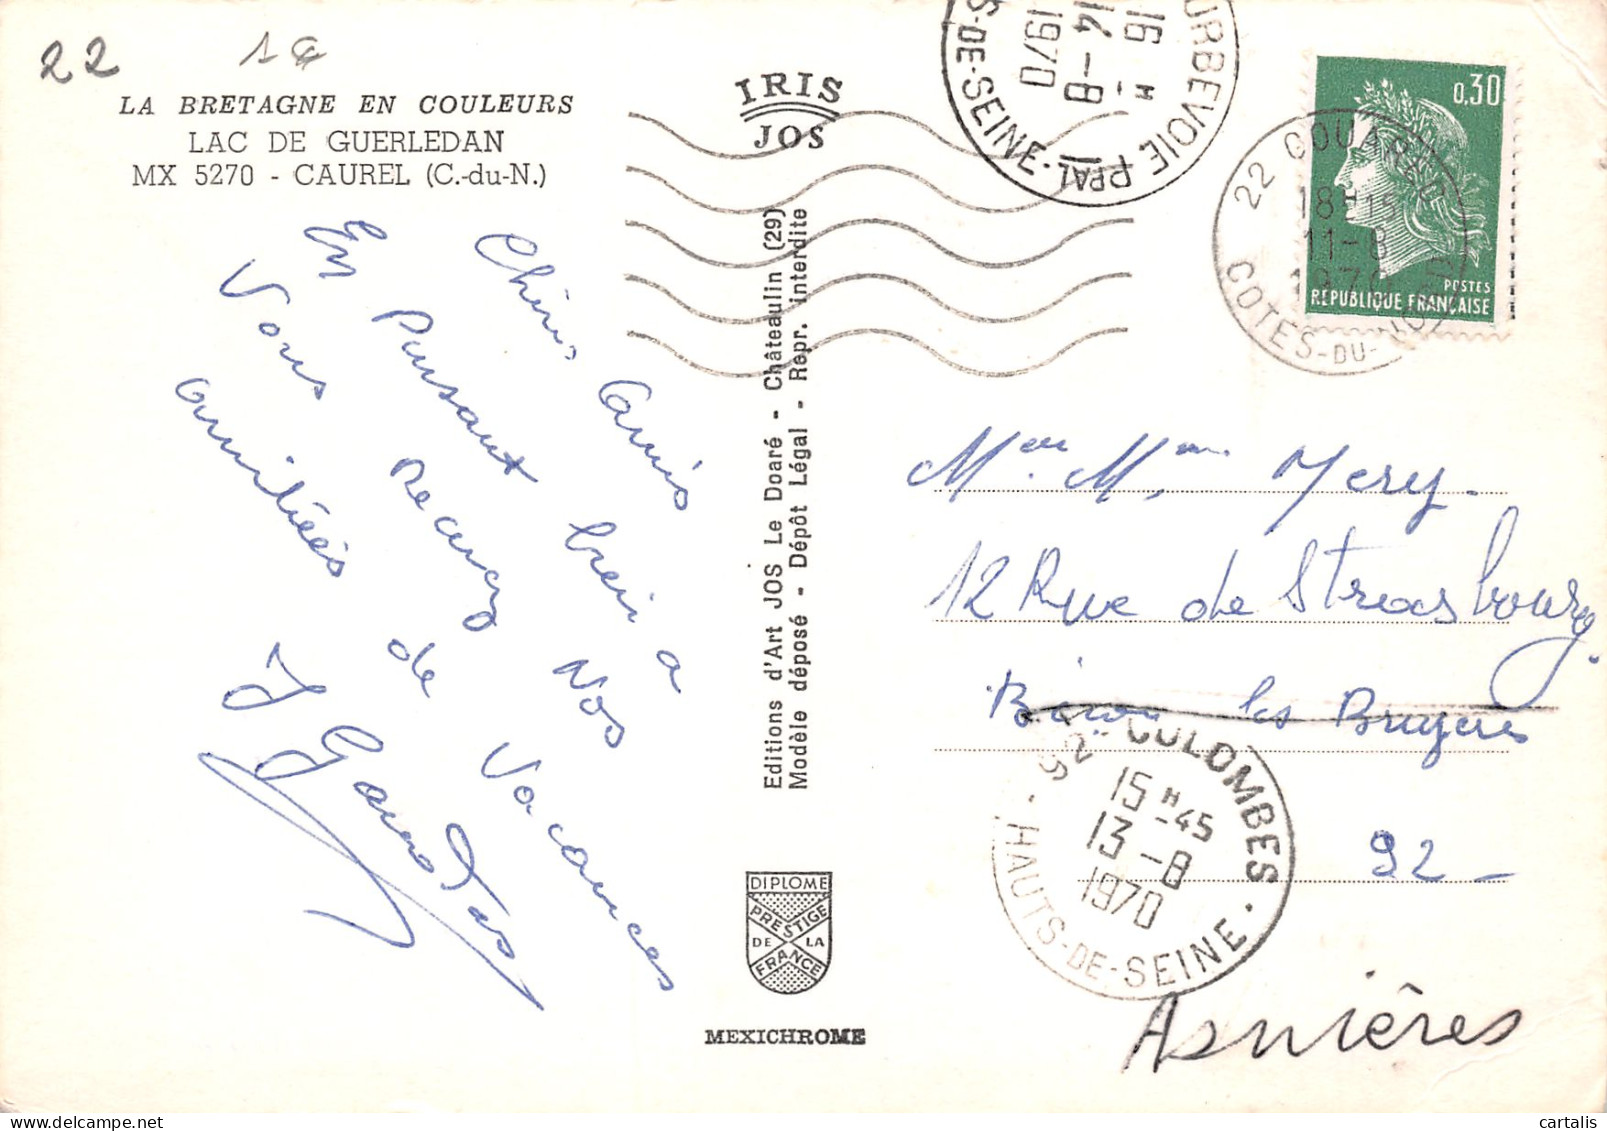 22
LA BRETAGNE EN COULEURS
LAC DE GUERLEDAN
MX 5270 - CAUREL (C.-du-N.)
Chers Amis
En Passant
Vous
amitiées
de
Nos
Vacances
IRIS
JOS
Editions d'Art JOS Le Doaré - Châteaulin (29)
Modèle déposé - Dépôt Légal - Repr. interdite
DIPLOME
PRESTIGE
DE LA
FRANCE
MEXICHROME
URBEVOIE PPAL
S-DE-SEINE
16 H
14-8
1970
0,30
POSTES
REPUBLIQUE FRANÇAISE
22 GOUAREC
18H15
11-8
1970
COTES-DU-NORD
12 Rue de Strasbourg
les Bruyeres
92 COLOMBES
15H45
13-8
1970
HAUTS-DE-SEINE
92 -
Asnières
cartalis
delcampe.net